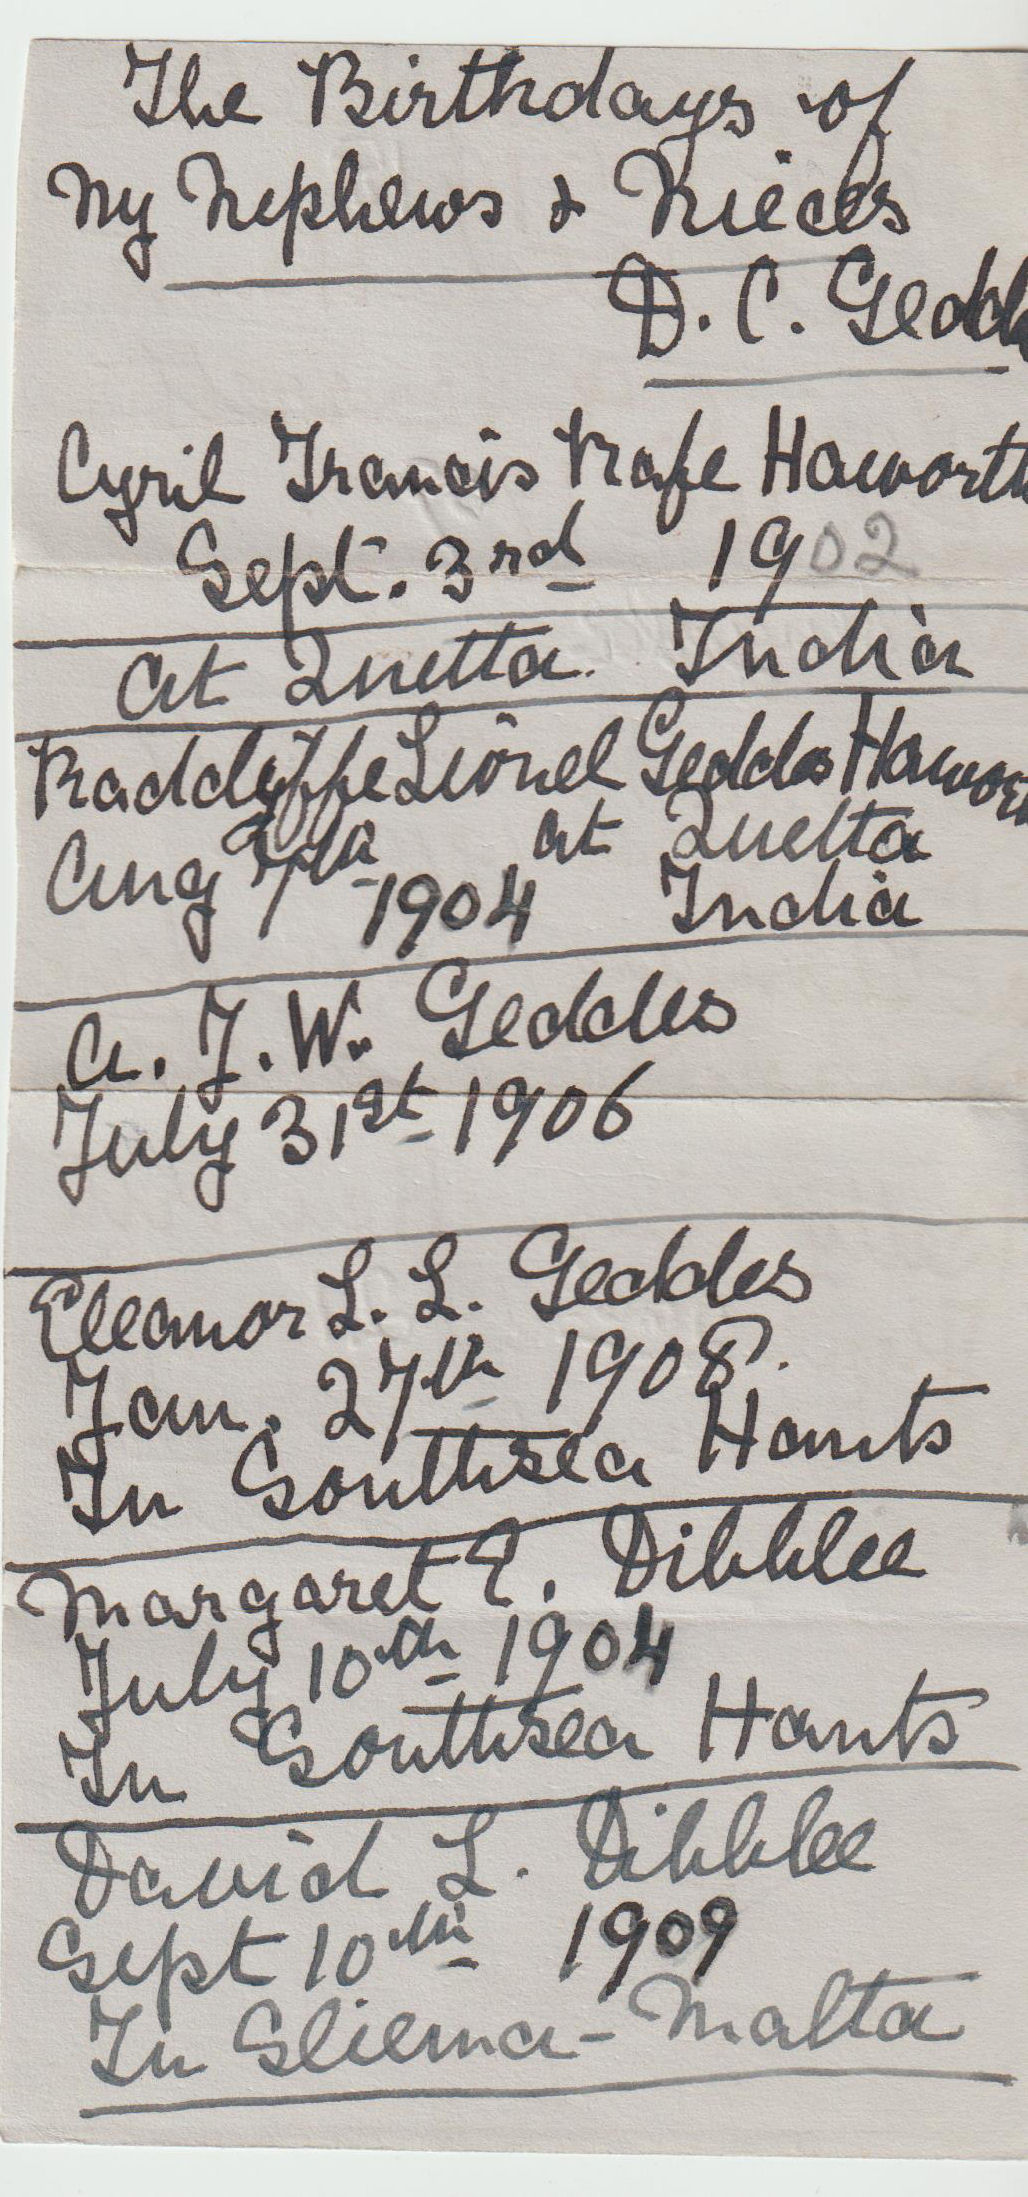 The Birthdays of
My Nephews & Nieces
D. C. Gedd
Cyril Francis Rafe Haworth
Sept. 3rd 1902
At Quetta. India
Radclyffe Lionel Geddes Haworth
Aug 7th 1904 at Quetta
India
A. F. W. Geddes
July 31st 1906
Eleanor L. L. Geddes
Jan. 27th 1908.
In Southsea Hants
Margaret E. Dibblee
July 10th 1904
In Southsea Hants
David L. Dibblee
Sept 10th 1909
In Sliema - Malta